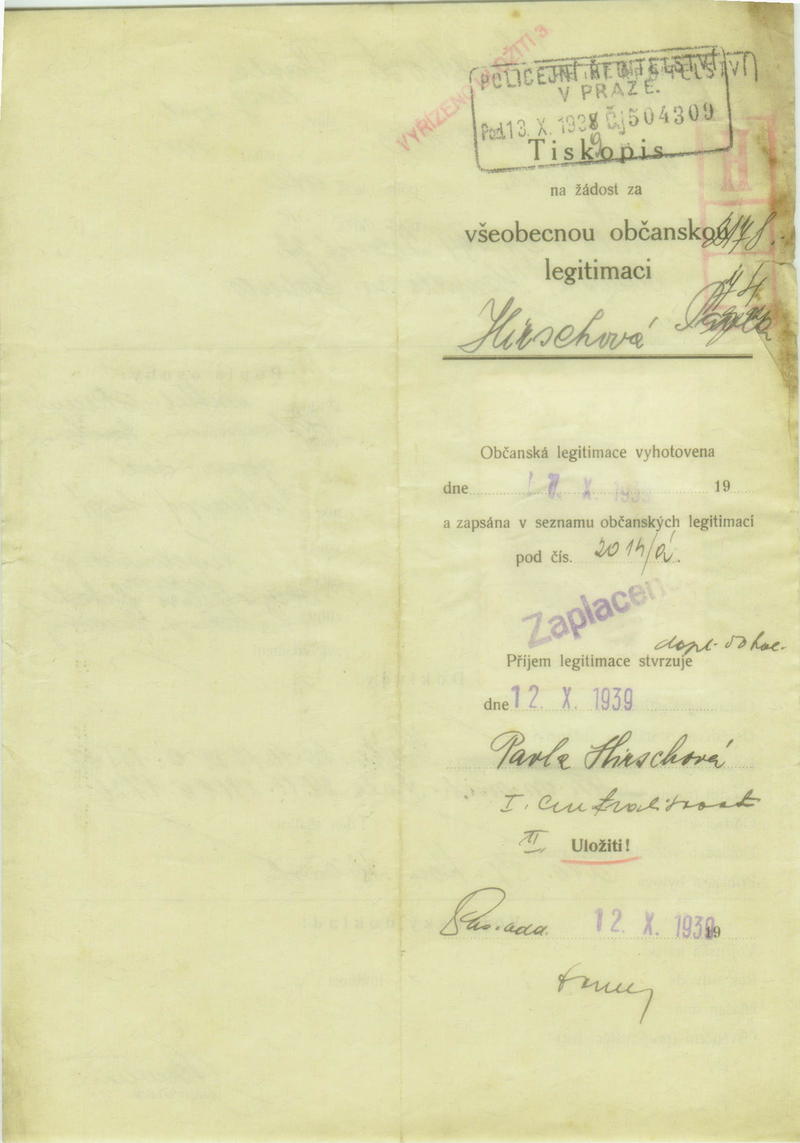 VYŘÍZENO ULOŽITI 3
POLICEJNÍ ŘEDITELSTVÍ
V PRAZE.
Pod. 13. X. 1939 Čj 504309
Tiskopis
na žádost za
všeobecnou občanskou
legitimaci
Hirschová Pavla
Občanská legitimace vyhotovena
dne X 1939 19
a zapsána v seznamu občanských legitimací
pod čís. 2014/á.
Zaplaceno
dopl.
Příjem legitimace stvrzuje
dne 12. X. 1939
Pavla Hirschová
I. centralisovat
II. Uložiti!
12. X. 1939 19